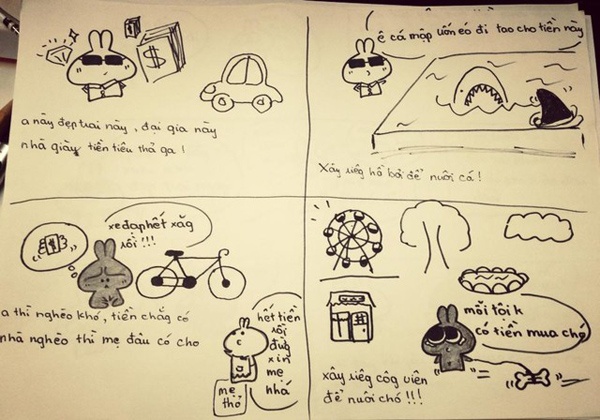 a này đẹp trai này, đại gia này
nhà giày tiền tiêu thả ga!
ê cá mập uốn éo đi tao cho tiền này
Xây riêg hồ bơi để nuôi cá!
xe đạp hết xăg
rồi!!!
a thì nghèo khó, tiền chẳg có
nhà nghèo thì mẹ đâu có cho
hết tiền
rồi
đừg
xin
mẹ
nhá
mẹ
thỏ
mỗi tội k
có tiền mua chó
xây riêg côg viên
để nuôi chó!!!